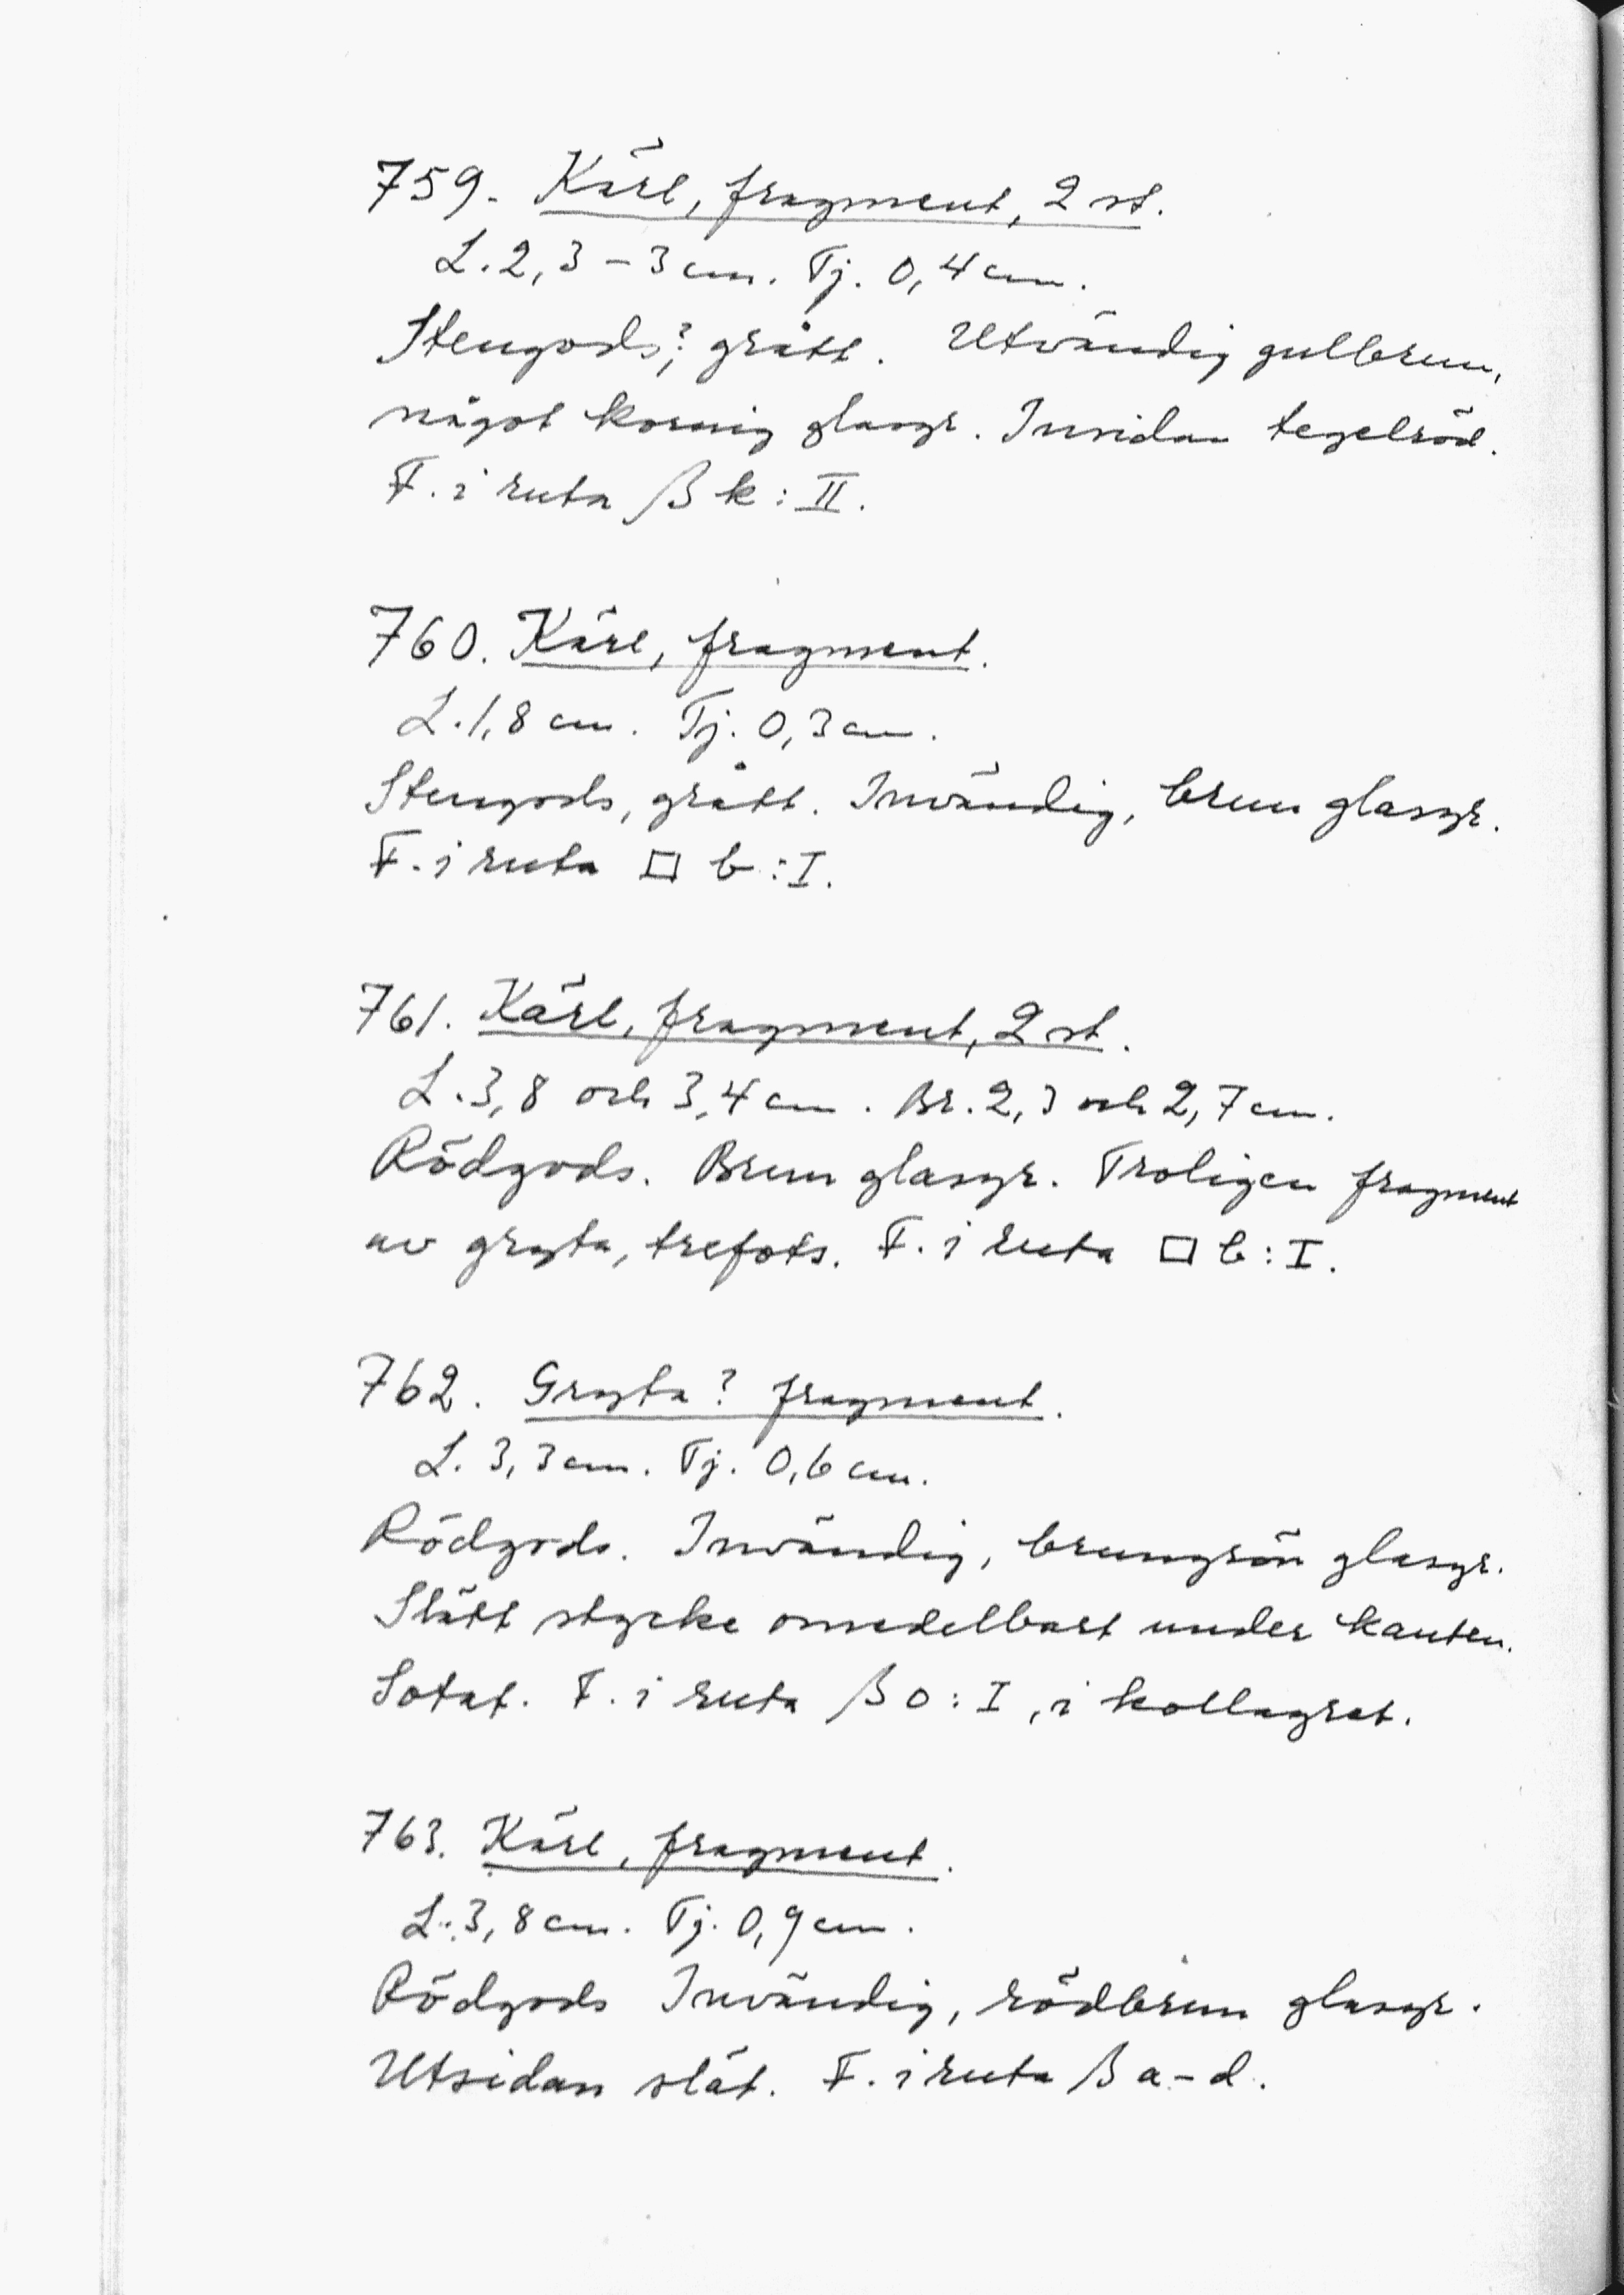 759. Kärl, fragment, 2 st.
L. 2,3 – 3 cm. Tj. 0,4 cm.
Stengods?, grått. Utvändig gulbrun,
något kornig glasyr. Insidan tegelröd.
F. i ruta β k : II.
760. Kärl, fragment.
L. 1,8 cm. Tj. 0,3 cm.
Stengods, grått. Invändig, brun glasyr.
F. i ruta □ b : I.
761. Kärl, fragment, 2 st.
L. 3,8 och 3,4 cm. Br. 2,3 och 2,7 cm.
Rödgods. Brun glasyr. Troligen fragment
av gryta, trefots. F. i ruta □ b : I.
762. Gryta? fragment.
L. 3,3 cm. Tj. 0,6 cm.
Rödgods. Invändig, brungrön glasyr.
Slätt stycke omedelbart under kanten.
Sotat. F. i ruta β o : I, i kollagret.
763. Kärl, fragment.
L. 3,8 cm. Tj. 0,9 cm.
Rödgods Invändig, rödbrun glasyr.
Utsidan slät. F. i ruta β a – d.